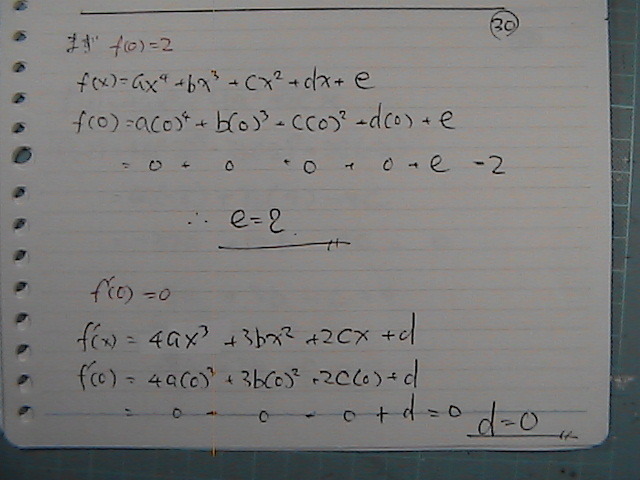 30
まず f(0)=2
f(x)=ax⁴+bx³+cx²+dx+e
f(0)=a(0)⁴+b(0)³+c(0)²+d(0)+e
= 0 + 0 + 0 + 0 + e = 2
∴ e=2
f'(0)=0
f'(x) = 4ax³+3bx²+2cx+d
f'(0) = 4a(0)³+3b(0)²+2c(0)+d
= 0 + 0 + 0 + d = 0 d=0